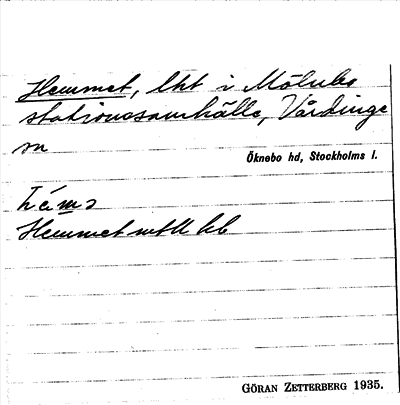 Hemmet, lht i Mölnbo
stationssamhälle, Vårdinge
sn
Öknebo hd, Stockholms l.
Hemmet mtU kb
GÖRAN ZETTERBERG 1935.